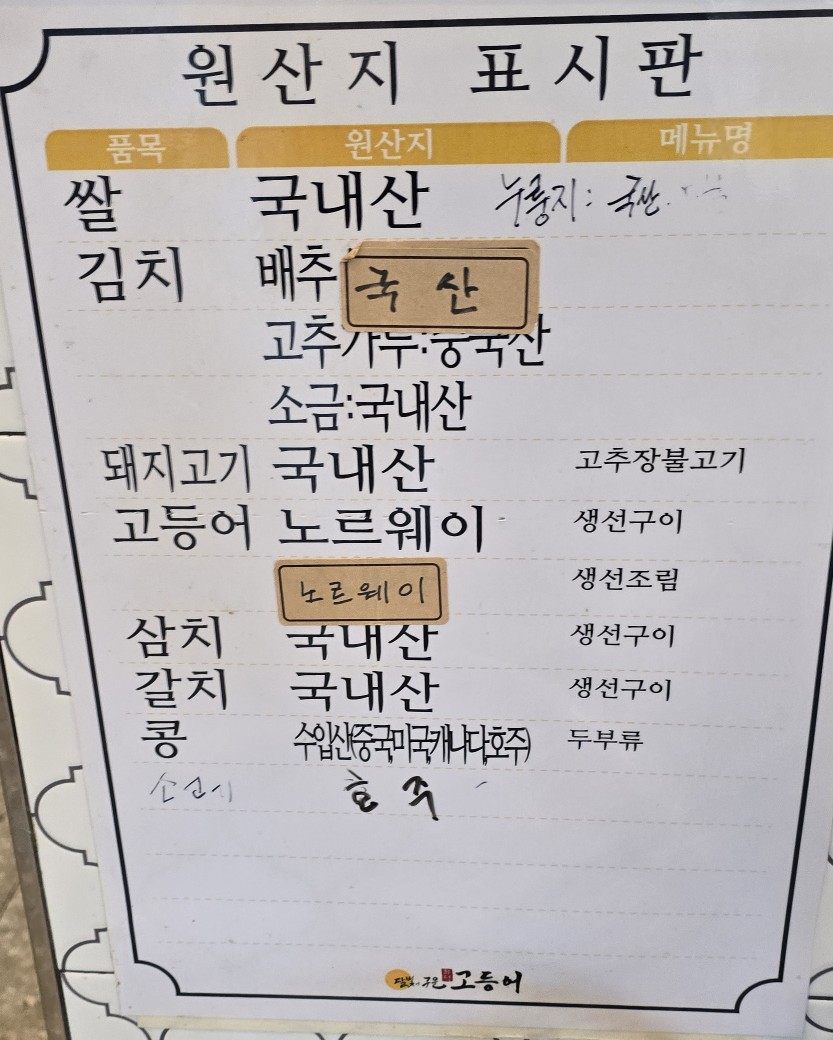 원산지 표시판
품목 원산지 메뉴명
쌀 국내산 누룽지: 국산
김치 배추 국 산
고추가루:중국산
소금:국내산
돼지고기 국내산 고추장불고기
고등어 노르웨이 생선구이
노르웨이 생선조림
삼치 국내산 생선구이
갈치 국내산 생선구이
콩 수입산(중국,미국,캐나다,호주) 두부류
호주
고등어